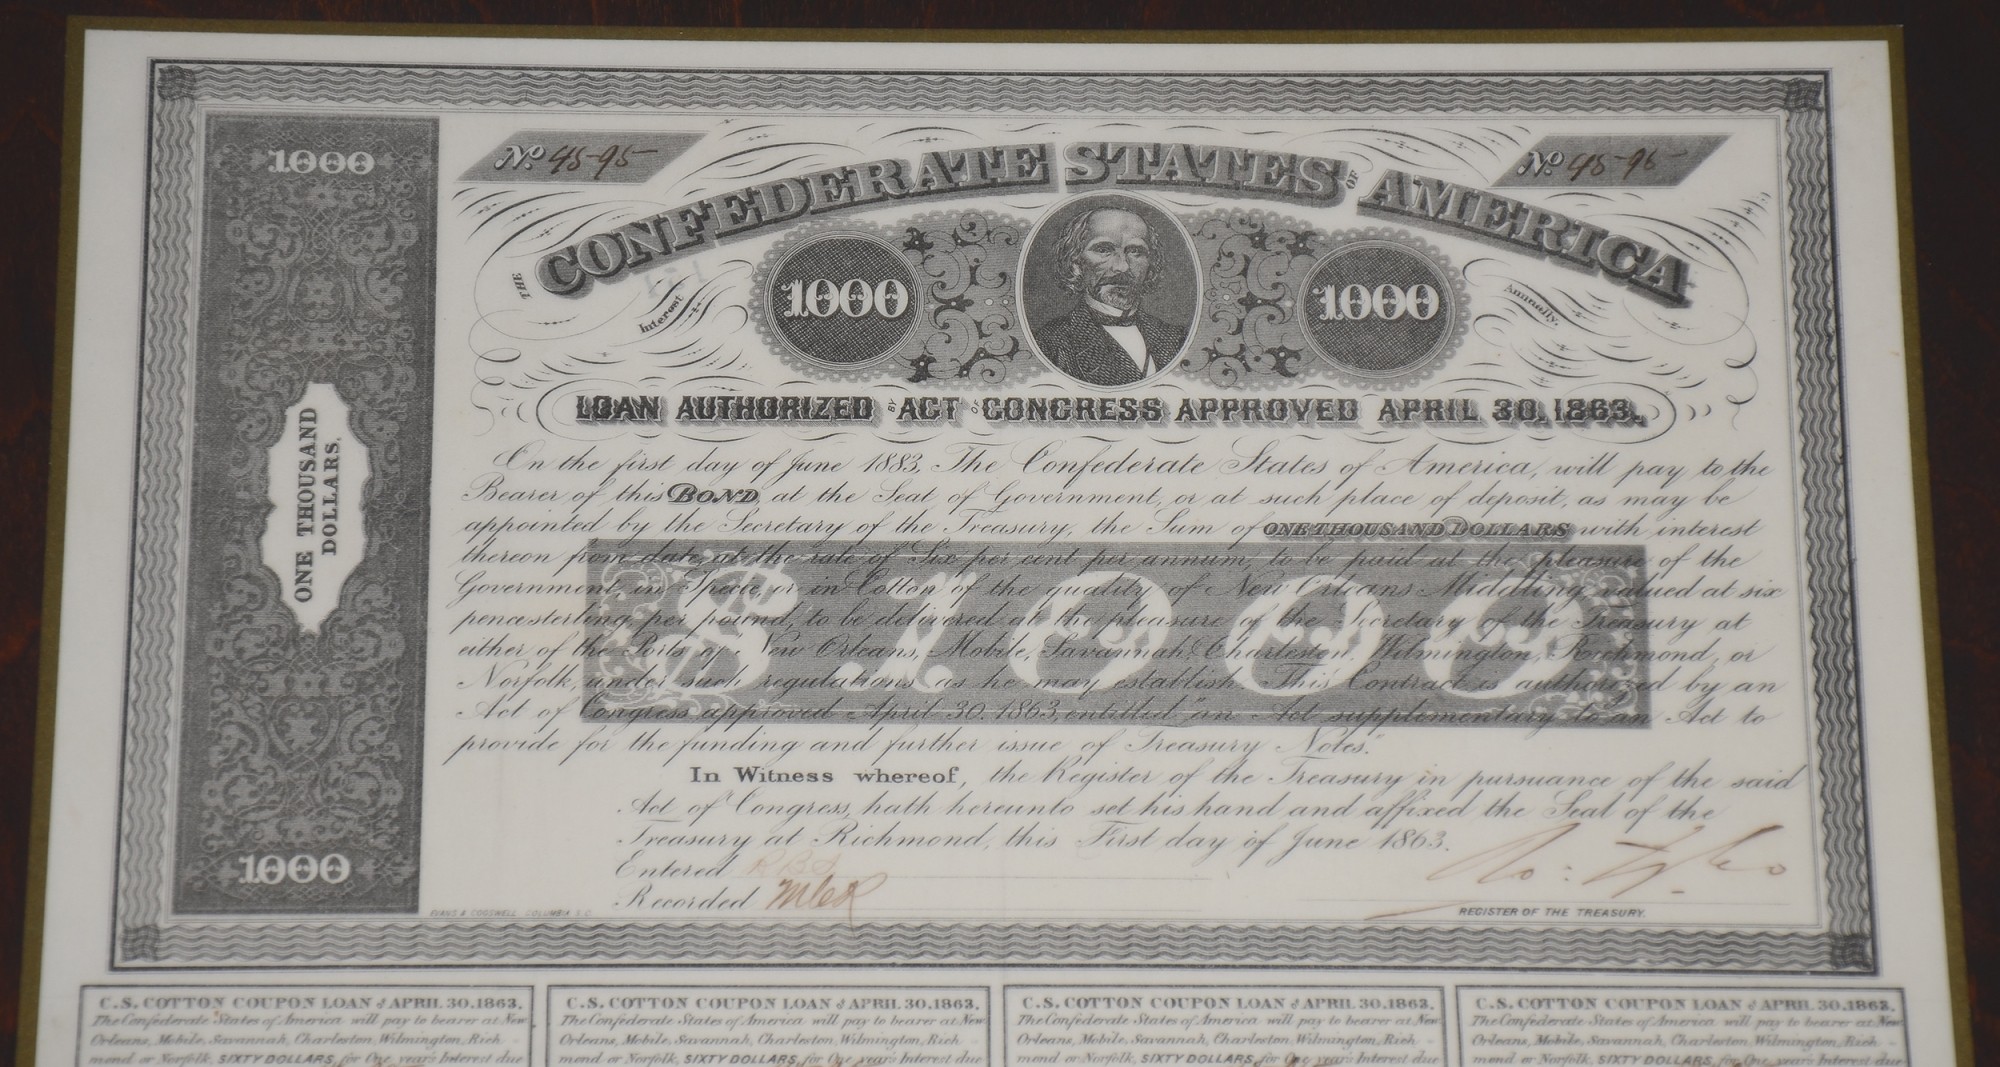 1000
ONE THOUSAND
DOLLARS.
1000
No 4595
No 4595
THE CONFEDERATE STATES OF AMERICA
Interest Annually.
1000
1000
LOAN AUTHORIZED BY ACT OF CONGRESS APPROVED APRIL 30, 1863.
On the first day of June 1883, The Confederate States of America, will pay to the
Bearer of this BOND, at the Seat of Government, or at such place of deposit, as may be
appointed by the Secretary of the Treasury, the Sum of ONE THOUSAND DOLLARS with interest
thereon from date, at the rate of Six per cent per annum, to be paid at the pleasure of the
Government, in Specie, or in Cotton of the quality of New Orleans Middling, valued at six
pence sterling per pound, to be delivered at the pleasure of the Secretary of the Treasury at
either of the Ports of New Orleans, Mobile, Savannah, Charleston, Wilmington, Richmond, or
Norfolk, under such regulations as he may establish. This Contract is authorized by an
Act of Congress approved April 30. 1863, entitled "an Act supplimentary to an Act to
provide for the funding and further issue of Treasury Notes."
$1000
In Witness whereof, the Register of the Treasury in pursuance of the said
Act of Congress, hath hereunto set his hand and affixed the Seal of the
Treasury at Richmond, this First day of June 1863.
Entered
Recorded
EVANS & COGSWELL, COLUMBIA S.C.
REGISTER OF THE TREASURY.
C.S. COTTON COUPON LOAN of APRIL 30.1863.
The Confederate States of America will pay to bearer at New
Orleans, Mobile, Savannah, Charleston, Wilmington, Rich-
mond or Norfolk, SIXTY DOLLARS, for One years Interest due
C.S. COTTON COUPON LOAN of APRIL 30.1863.
The Confederate States of America will pay to bearer at New
Orleans, Mobile, Savannah, Charleston, Wilmington, Rich-
mond or Norfolk, SIXTY DOLLARS, for One years Interest due
C.S. COTTON COUPON LOAN of APRIL 30.1863.
The Confederate States of America will pay to bearer at New
Orleans, Mobile, Savannah, Charleston, Wilmington, Rich-
mond or Norfolk, SIXTY DOLLARS, for One years Interest due
C.S. COTTON COUPON LOAN of APRIL 30.1863.
The Confederate States of America will pay to bearer at New
Orleans, Mobile, Savannah, Charleston, Wilmington, Rich-
mond or Norfolk, SIXTY DOLLARS, for One years Interest due